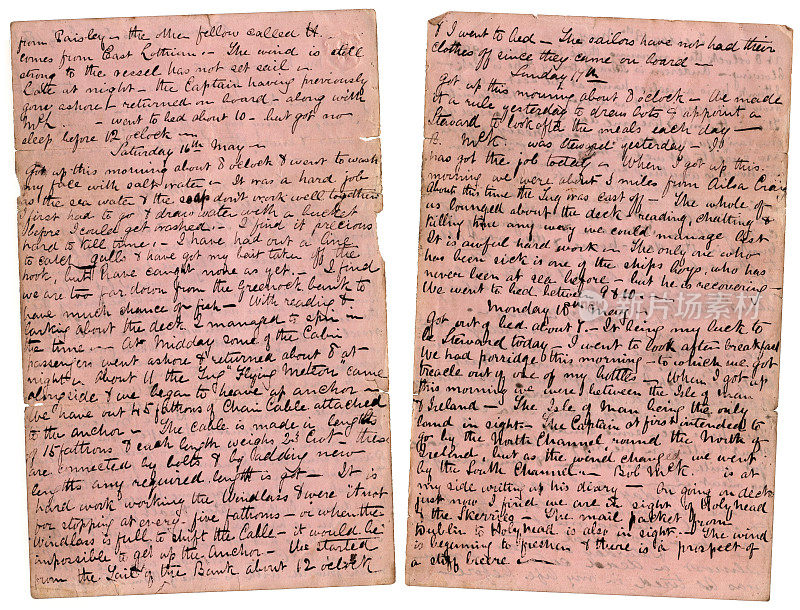 from Paisley – the other fellow called H.
comes from East Lothian. – The wind is still
strong so the vessel has not set sail –
Late at night – the Captain having previously
gone ashore & returned on board – along with
McK. – went to bed about 10 – but got no
sleep before 12 oclock –
Saturday 16th May –
Got up this morning about 8 oclock & went to wash
my face with salt water – It was a hard job
as the sea water & the soap don't work well together
I first had to go & draw water with a bucket
before I could get washed. – I find it precious
hard to kill time. – I have had out a line
to catch gulls & have got my bait taken off the
hook, but have caught none as yet. – I find
we are too far down from the Greenock bank to
have much chance of fish – With reading &
larking about the deck I managed to spin –
the time. – At midday some of the Cabin
passengers went ashore & returned about 8 at
night – About 11 the Tug "Flying Meteor" came
alongside & we began to heave up anchor –
We have out 45 fathoms of Chain Cable attached
to the anchor – The cable is made in lengths
of 15 fathoms & each length weighs 23 Cwt – these
are connected by bolts & by adding new
lengths any required length is got – It is
hard work working the Windlass & were it not
for stopping at every five fathoms – or when the
Windlass is full to shift the Cable – it would be
impossible to get up the Anchor – We started
from the Tail of the Bank about 12 oclock
& I went to bed – The sailors have not had their
clothes off since they came on board –
Sunday 17th
Got up this morning about 8 oclock – We made
it a rule yesterday to draw lots & appoint a
Steward to look after the meals each day –
A. McK. was steward yesterday –
has got the job today – When I got up this
morning we were about 5 miles from Ailsa Craig
About this time the tug was cast off – The whole of
us lounged about the deck reading, chatting &
killing time any way we could manage best
It is awful hard work – The only one who
has been sick is one of the ships boys, who has
never been at sea before – but he is recovering –
We went to bed between 9 & 10 –
Monday 18th May
Got out of bed about 8 – It being my luck to
be Steward today – I went to look after breakfast
We had porridge this morning – to which we got
treacle out of one of my bottles – When I got up
this morning we were between the Isle of Man
& Ireland – The Isle of Man being the only
land in sight – The Captain at first intended to
go by the North Channel round the North of
Ireland, but as the wind changed we went
by the South Channel. – Bob McK. is at
my side writing up his diary – On going on deck
just now I find we are in sight of Holyhead
& the Skerries – The mail packet from
Dublin to Holyhead is also in sight – The wind
is beginning to freshen & there is a prospect of
a stiff breeze. –